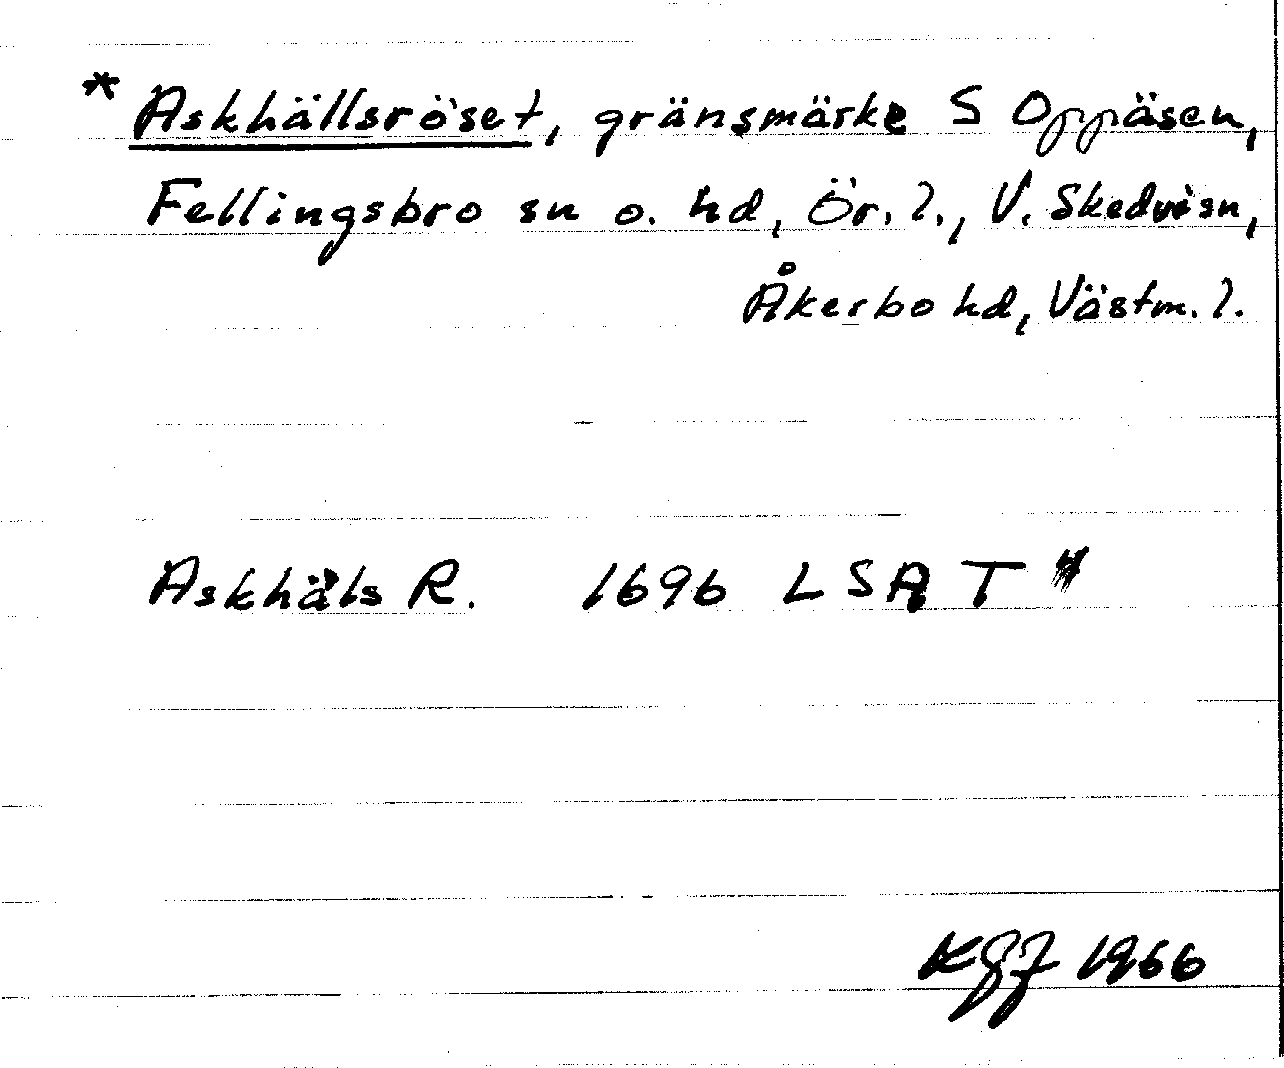 * Askhällsröset, gränsmärke S Oppäsen,
Fellingsbro sn o. hd, Ör. l., V. Skedvi sn,
Åkerbo hd, Västm. l.
Askhäls R. 1696 LSA T
1966